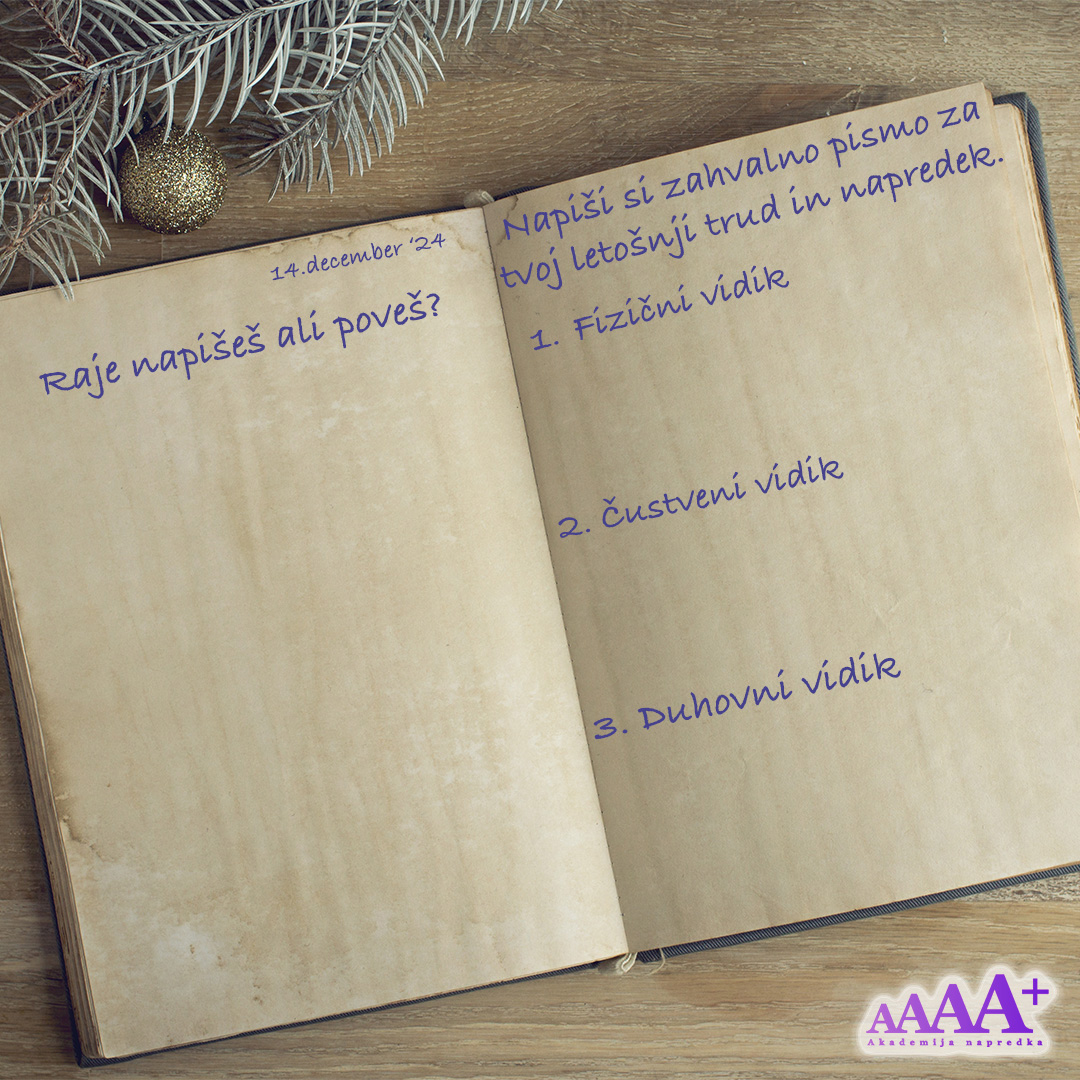 14.december '24
Raje napišeš ali poveš?
Napiši si zahvalno pismo za
tvoj letošnji trud in napredek.
1. Fizični vidik
2. Čustveni vidik
3. Duhovni vidik
AAAA+
Akademija napredka